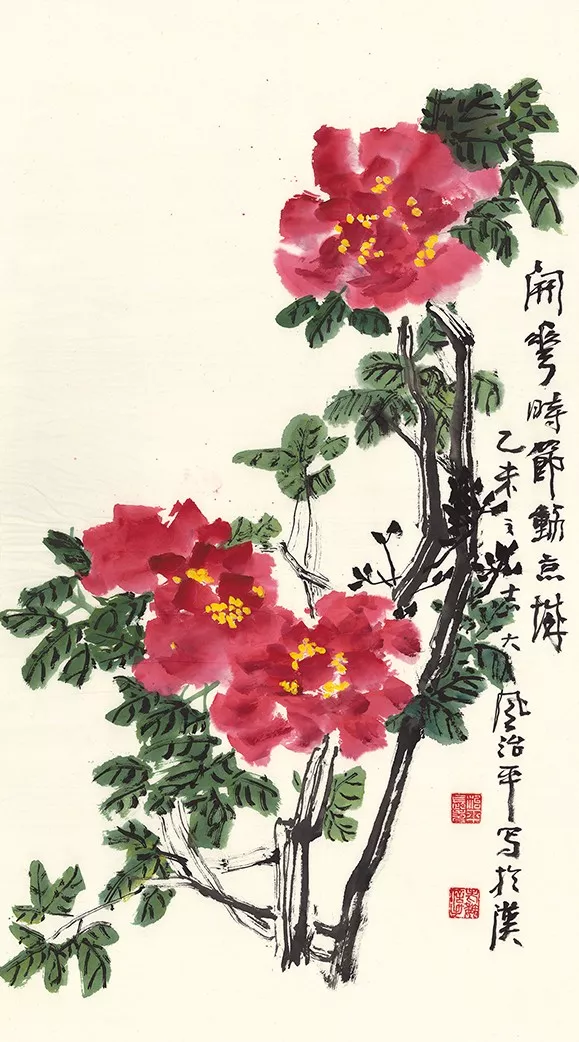 開花時節動京城
乙未之 大風治平写於漢